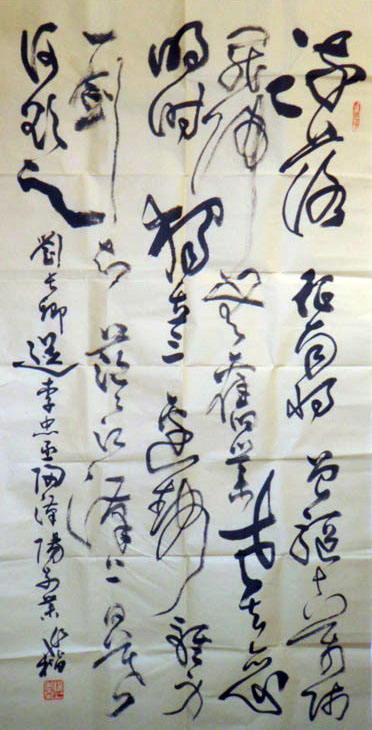 流落征南将曾驱十万师
罷归无舊业老去恋
明时独立三边静轻生
一剑知茫茫江漢上日暮
何欲之
劉长卿送李中丞归漢陽别業